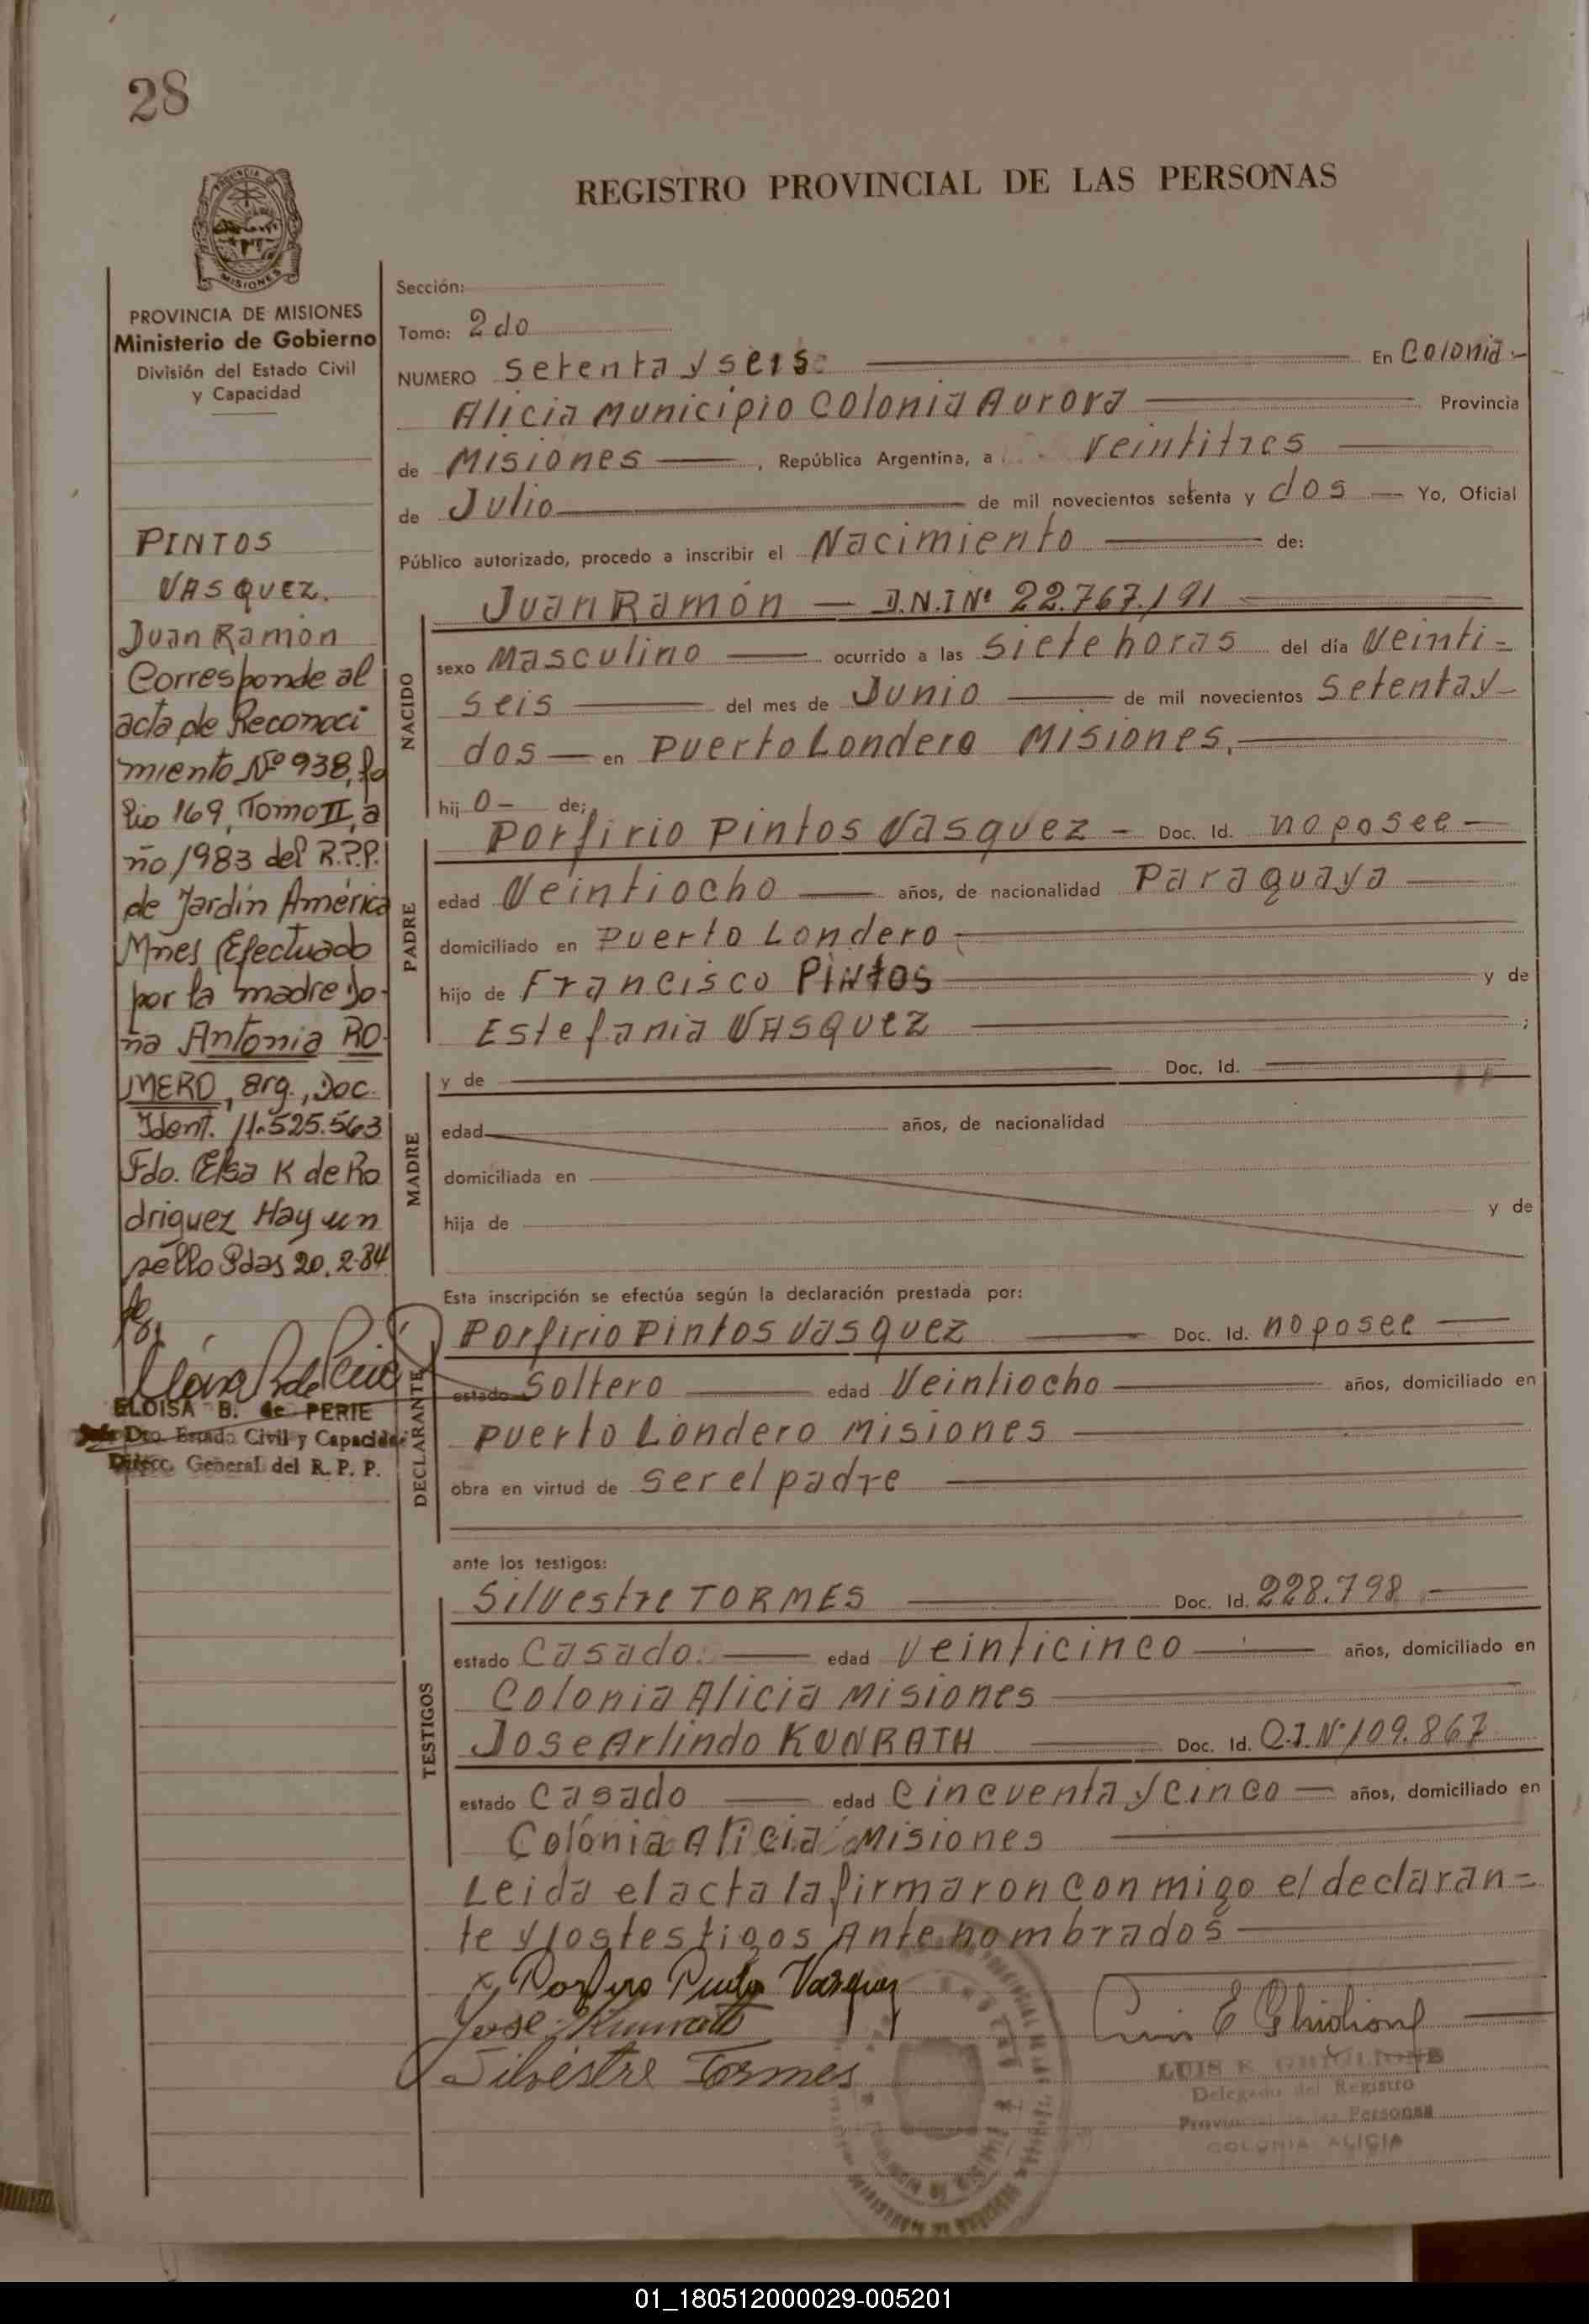 28
REGISTRO PROVINCIAL DE LAS PERSONAS
MISIONES
PROVINCIA DE MISIONES
Ministerio de Gobierno
División del Estado Civil
y Capacidad
PINTOS
VASQUEZ.
Juan Ramón
Corresponde al
acta de Reconoci
miento Nº 938, fo
lio 169, Tomo II, a
ño 1983 del R.P.P.
de Jardín América
Mnes Efectuado
por la madre Do-
ña Antonia RO
MERO, arg., Doc.
Ident. 11.525.563
Fdo. Elsa K de Ro
driguez Hay un
sello Pdas 20.2.84
ELOISA B. de PERIE
Jefe Dto. Estado Civil y Capacidad
Direcc. General del R. P. P.
Sección:
Tomo: 2do
NUMERO setenta y seis En Colonia -
Alicia Municipio Colonia Aurora Provincia
de Misiones , República Argentina, a veintitres
de Julio de mil novecientos setenta y dos Yo, Oficial
Público autorizado, procedo a inscribir el Nacimiento de:
Juan Ramón — D.N.I Nº 22.767.191
NACIDO
sexo Masculino ocurrido a las siete horas del día Veinti=
seis del mes de Junio de mil novecientos setenta y
dos — en Puerto Londero Misiones.
hij o- de;
Porfirio Pintos Vasquez - Doc. Id. no posee
PADRE
edad Veintiocho años, de nacionalidad Paraguaya
domiciliado en Puerto Londero
hijo de Francisco Pintos y de
Estefania VAsquez ;
MADRE
y de Doc. Id.
edad años, de nacionalidad
domiciliada en
hija de y de
Esta inscripción se efectúa según la declaración prestada por:
DECLARANTE
Porfirio Pintos Vasquez Doc. Id. no posee
estado Soltero edad Veintiocho años, domiciliado en
Puerto Londero Misiones
obra en virtud de ser el padre
ante los testigos:
TESTIGOS
Silvestre TORMES Doc. Id. 228.798
estado Casado. edad Veinticinco años, domiciliado en
Colonia Alicia Misiones
Jose Arlindo KUNRATH Doc. Id. C.I.Nº 109.867
estado Casado edad Cincuenta y cinco años, domiciliado en
Colonia Alicia Misiones
Leida el acta la firmaron conmigo el declaran=
te y los testigos Antenombrados
x Porfirio Pintos Vasquez
Jose Kunrath
Silvestre Tormes
Luis E Ghiglione
LUIS E. GHIGLIONE
Delegado del Registro
Provincial de las Personas
COLONIA ALICIA
01_180512000029-005201